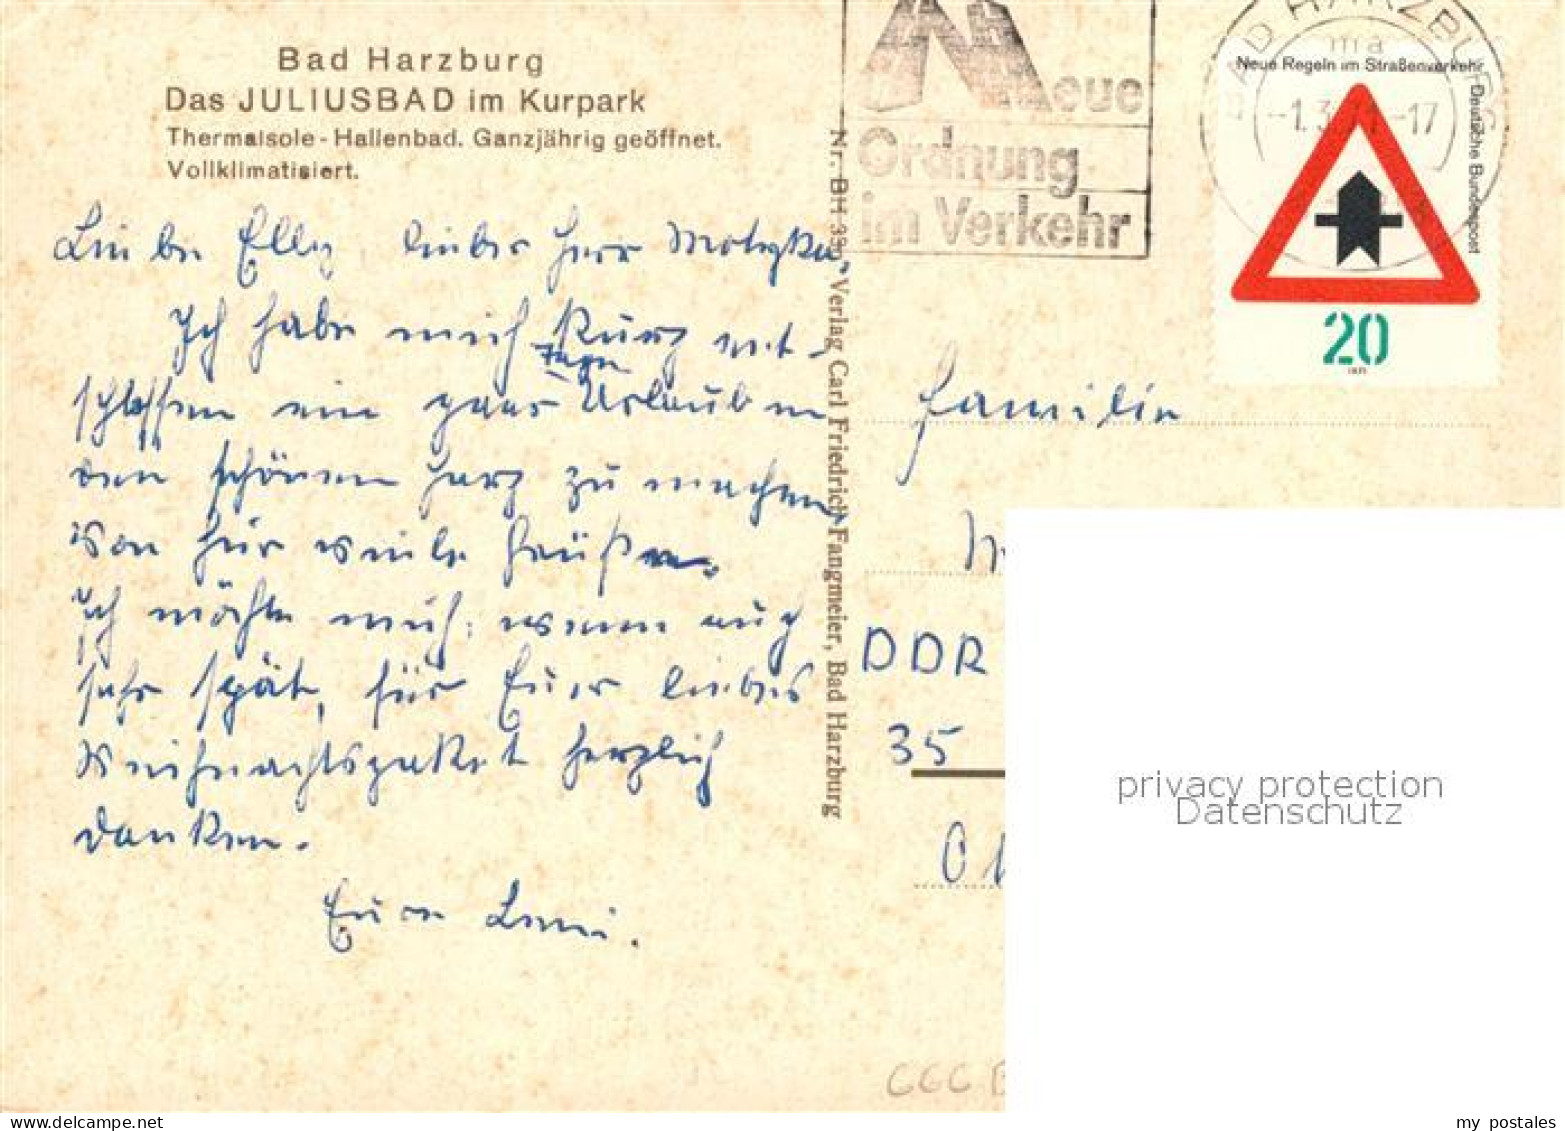 Bad Harzburg
Das JULIUSBAD im Kurpark
Thermalsole-Hallenbad. Ganzjährig geöffnet.
Vollklimatisiert.
Liebe Elly lieber Herr
Ich habe mich kurz ent-
schlossen ein paar Tage Urlaub in
den schönen Harz zu machen,
von hier viele Grüße
ich möchte mich, wenn auch
sehr spät, für Euer liebes
Weihnachtspaket herzlich
danken.
Eure
Nr. BH 39 Verlag Carl Friedrich Fangmeier, Bad Harzburg
Neue
Ordnung
im Verkehr
BAD HARZBURG
Neue Regeln im Straßenverkehr
Deutsche Bundespost
20
1971
Familie
DDR
35
privacy protection
Datenschutz
my postales